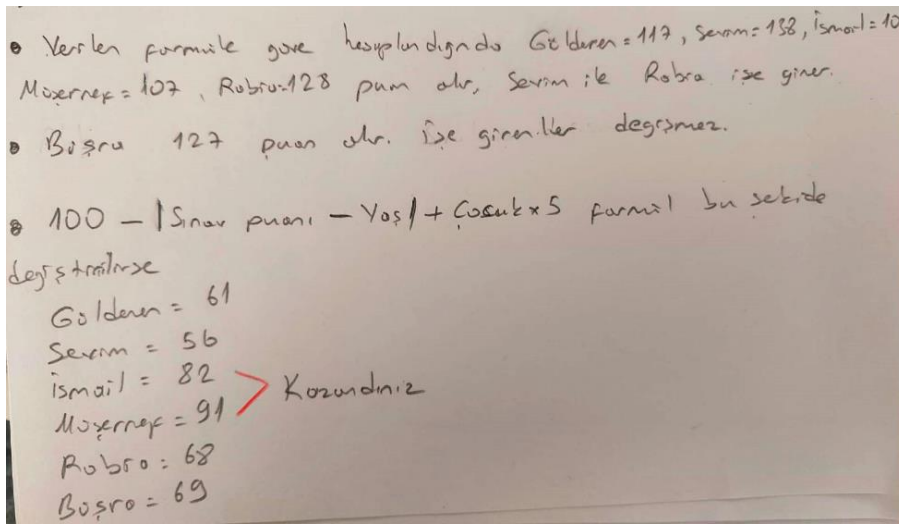 • Verilen formüle göre hesaplandığında Gülderen = 117, Sevim = 138, İsmail = 10
Müşerref = 107, Rabia = 128 puan alır, Sevim ile Rabia işe girer.
• Büşra 127 puan alır. İşe girenler değişmez.
• 100 - |Sınav puanı - Yaş| + Çocuk x 5 formül bu şekilde
değiştirilirse
Gülderen = 61
Sevim = 56
İsmail = 82
Müşerref = 91 > Kazandınız
Rabia = 68
Büşra = 69